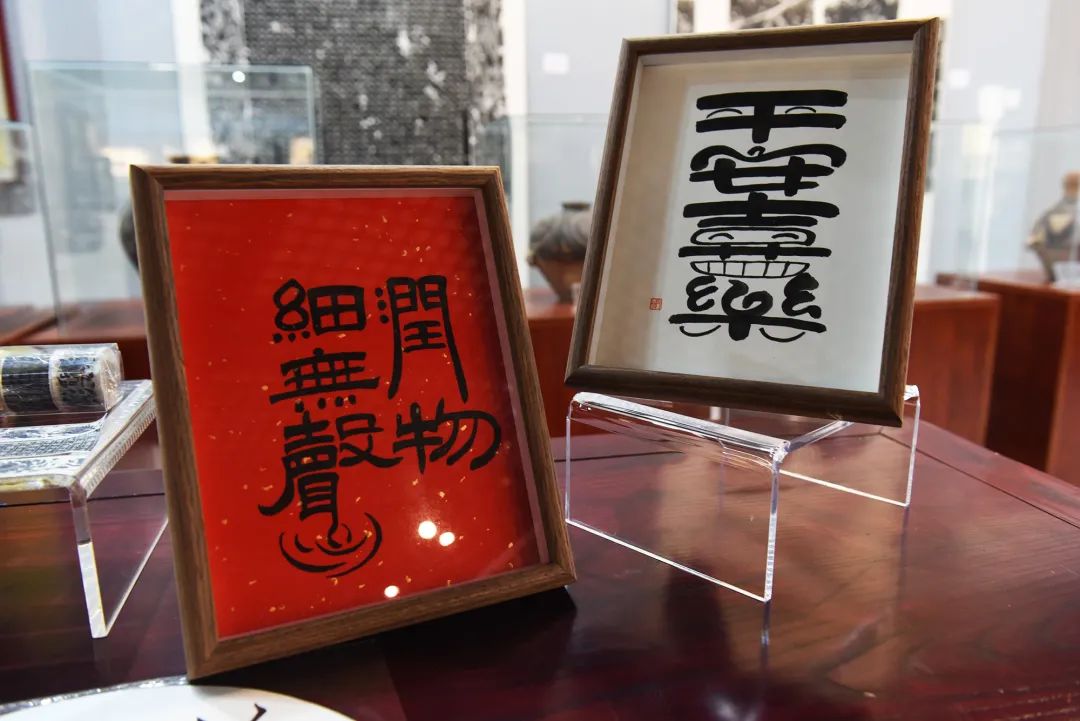 潤物
細無聲
平安喜樂